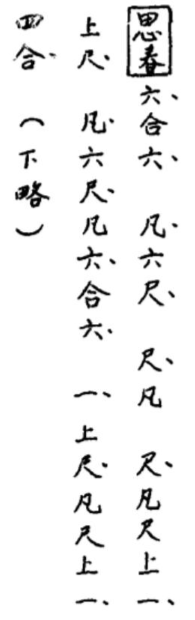 思春六、合六、 凡、六尺、 尺、凡 尺、凡尺上一、
上尺、 凡、六尺、凡六、合六、 一、上尺、凡尺上一、
四合、 (下略)